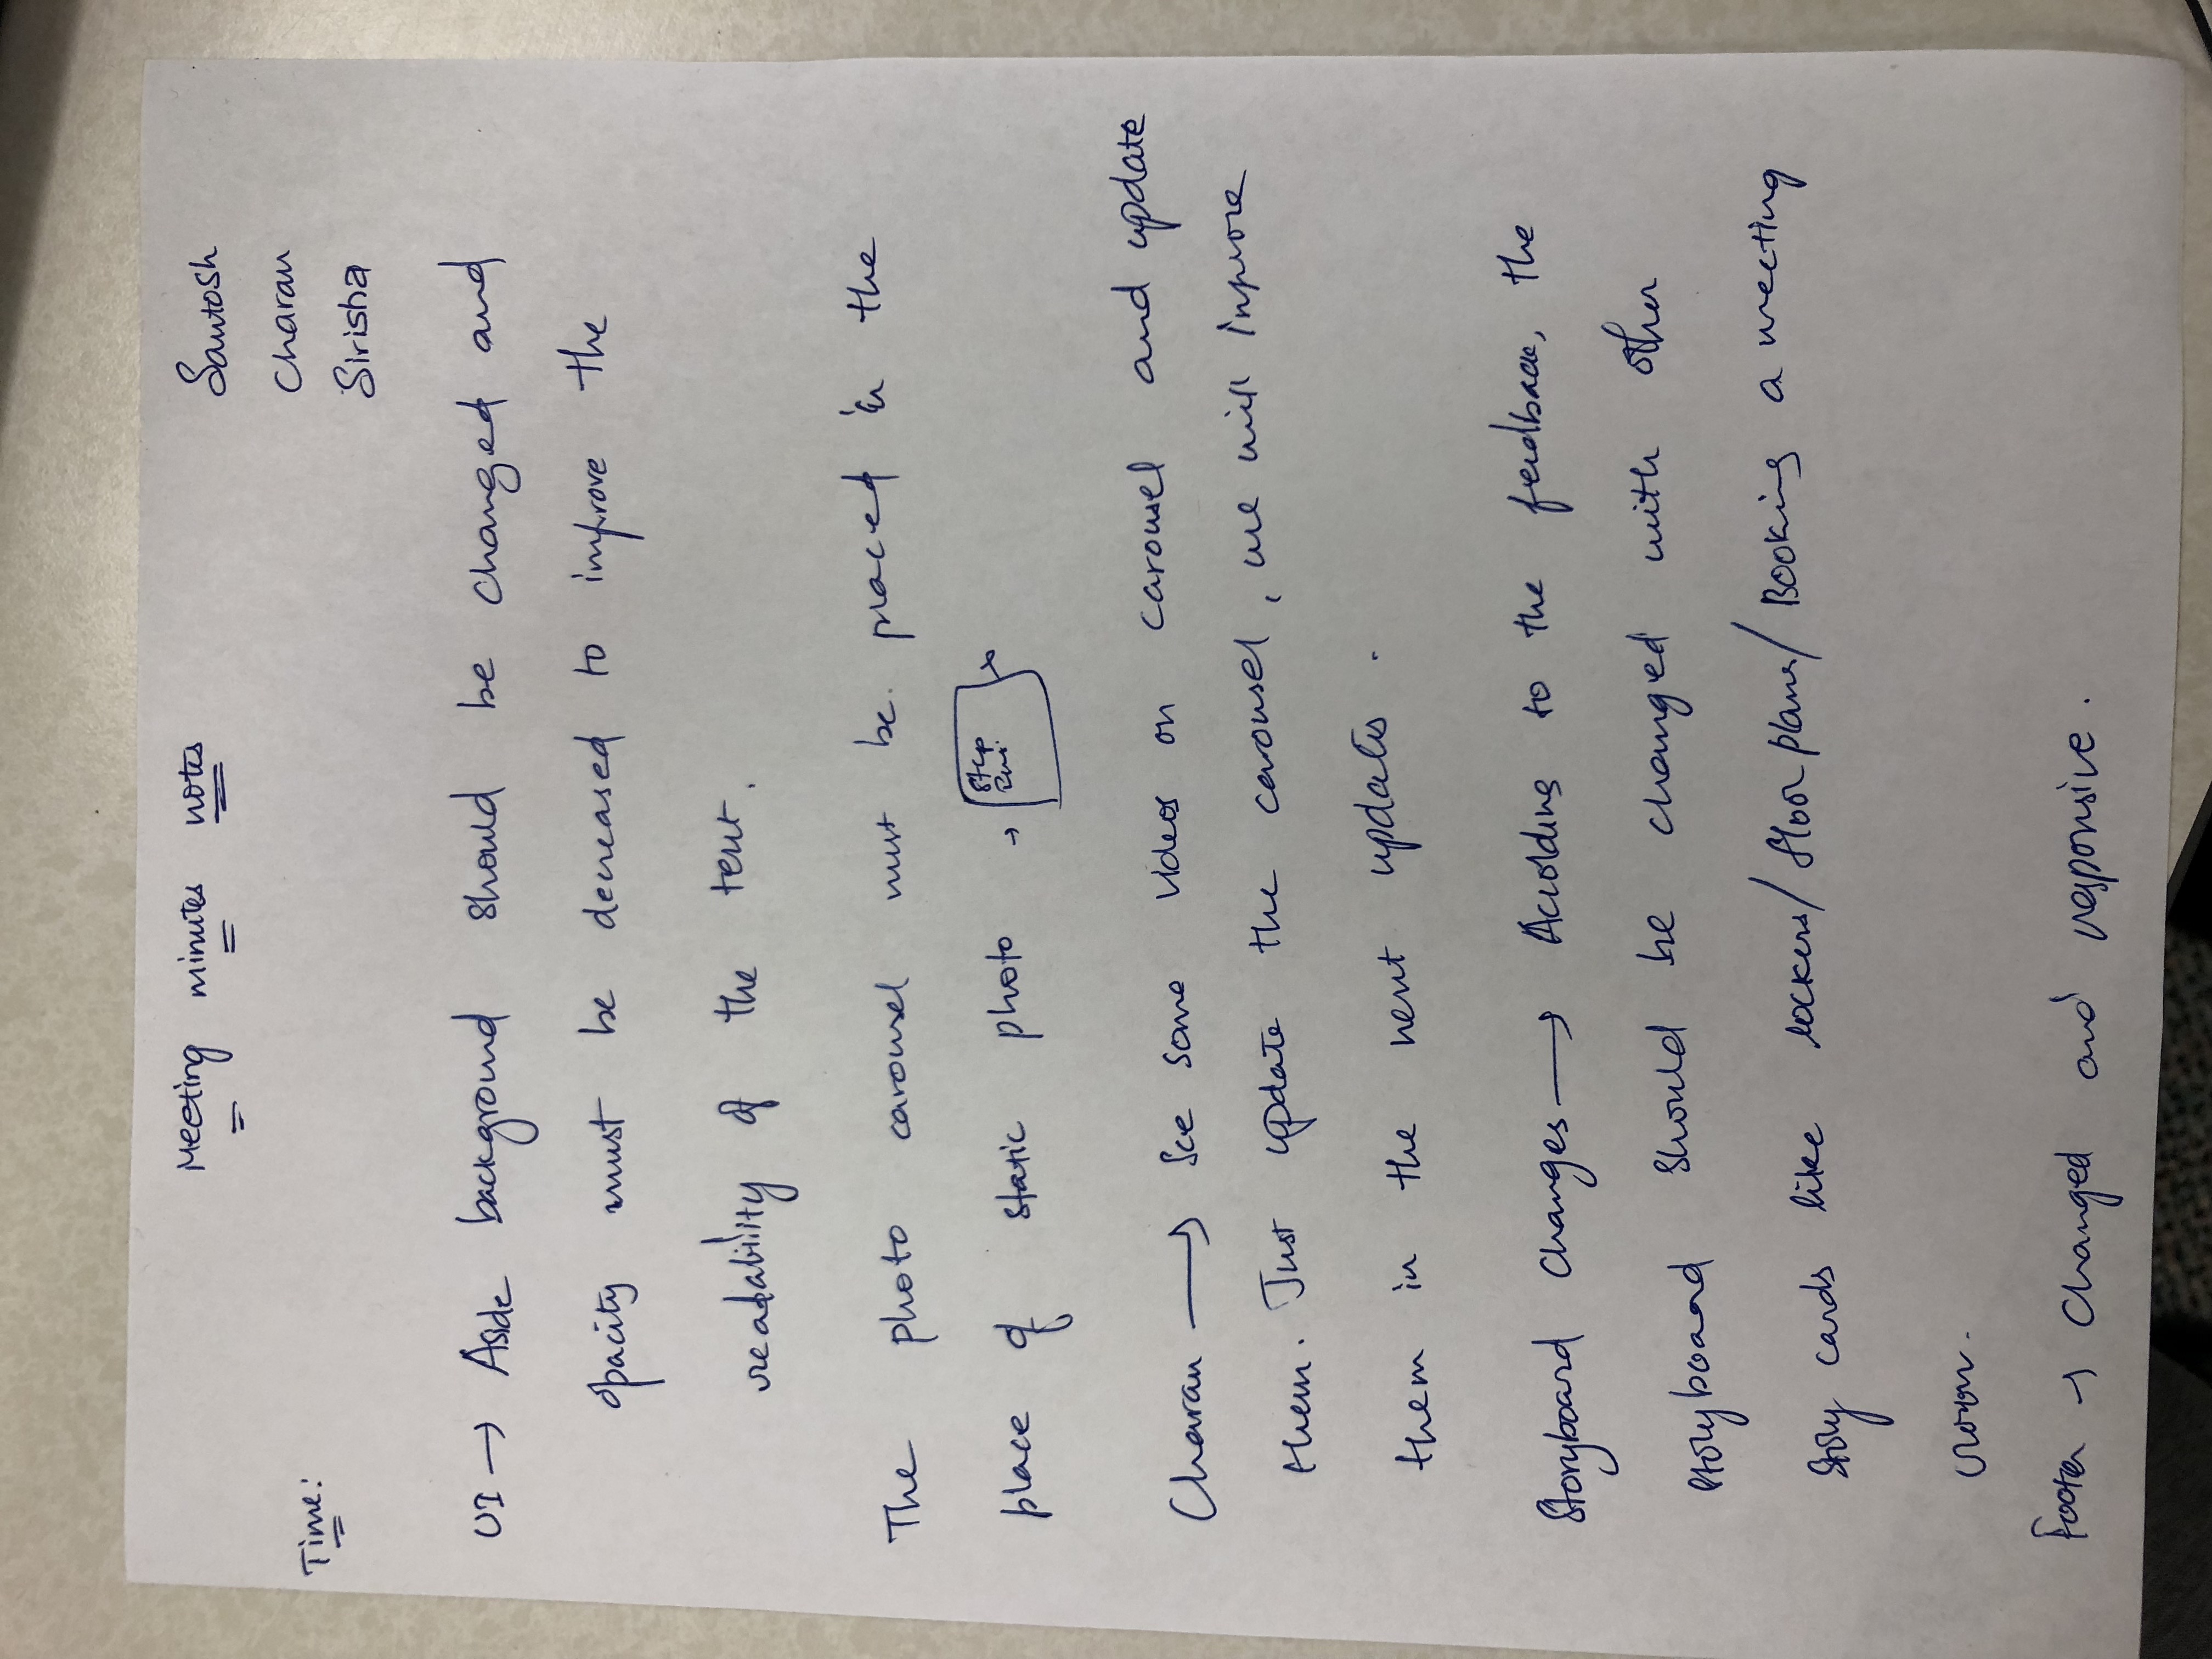 Meeting minutes notes
Santosh
Charan
Sirisha
Time:
UI → Aside background should be changed and
opacity must be decreased to improve the
readability of the text.
The photo carousel must be placed in the
place of static photo →
Step
Charan → See some videos on carousel and update
them. Just update the carousel, we will improve
them in the next updates.
Storyboard changes → According to the feedback, the
storyboard should be changed with other
story cards like lockers/floor plans/Booking a meeting
room.
Footer → Changed and responsive.